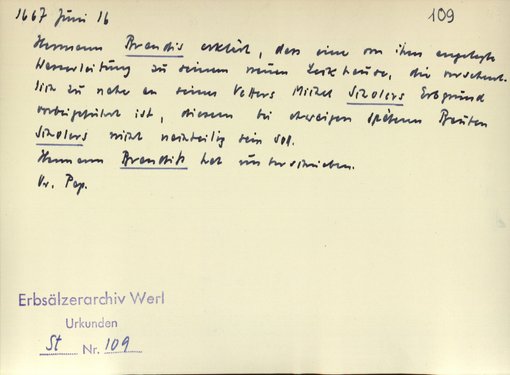 1667 Juni 16
109
Hermann Brandis erklärt, dass eine von ihm angelegte
Wasserleitung zu seinem neuen Leckhause, die versehent-
lich zu nahe an seines Vetters Michel Schelers Erbgrund
vorbeigeführt ist, diesem bei etwaigen späteren Bauten
Schelers nicht nachteilig sein soll.
Hermann Brandis hat unterschrieben.
Or. Pap.
Erbsälzerarchiv Werl
Urkunden
St Nr. 109